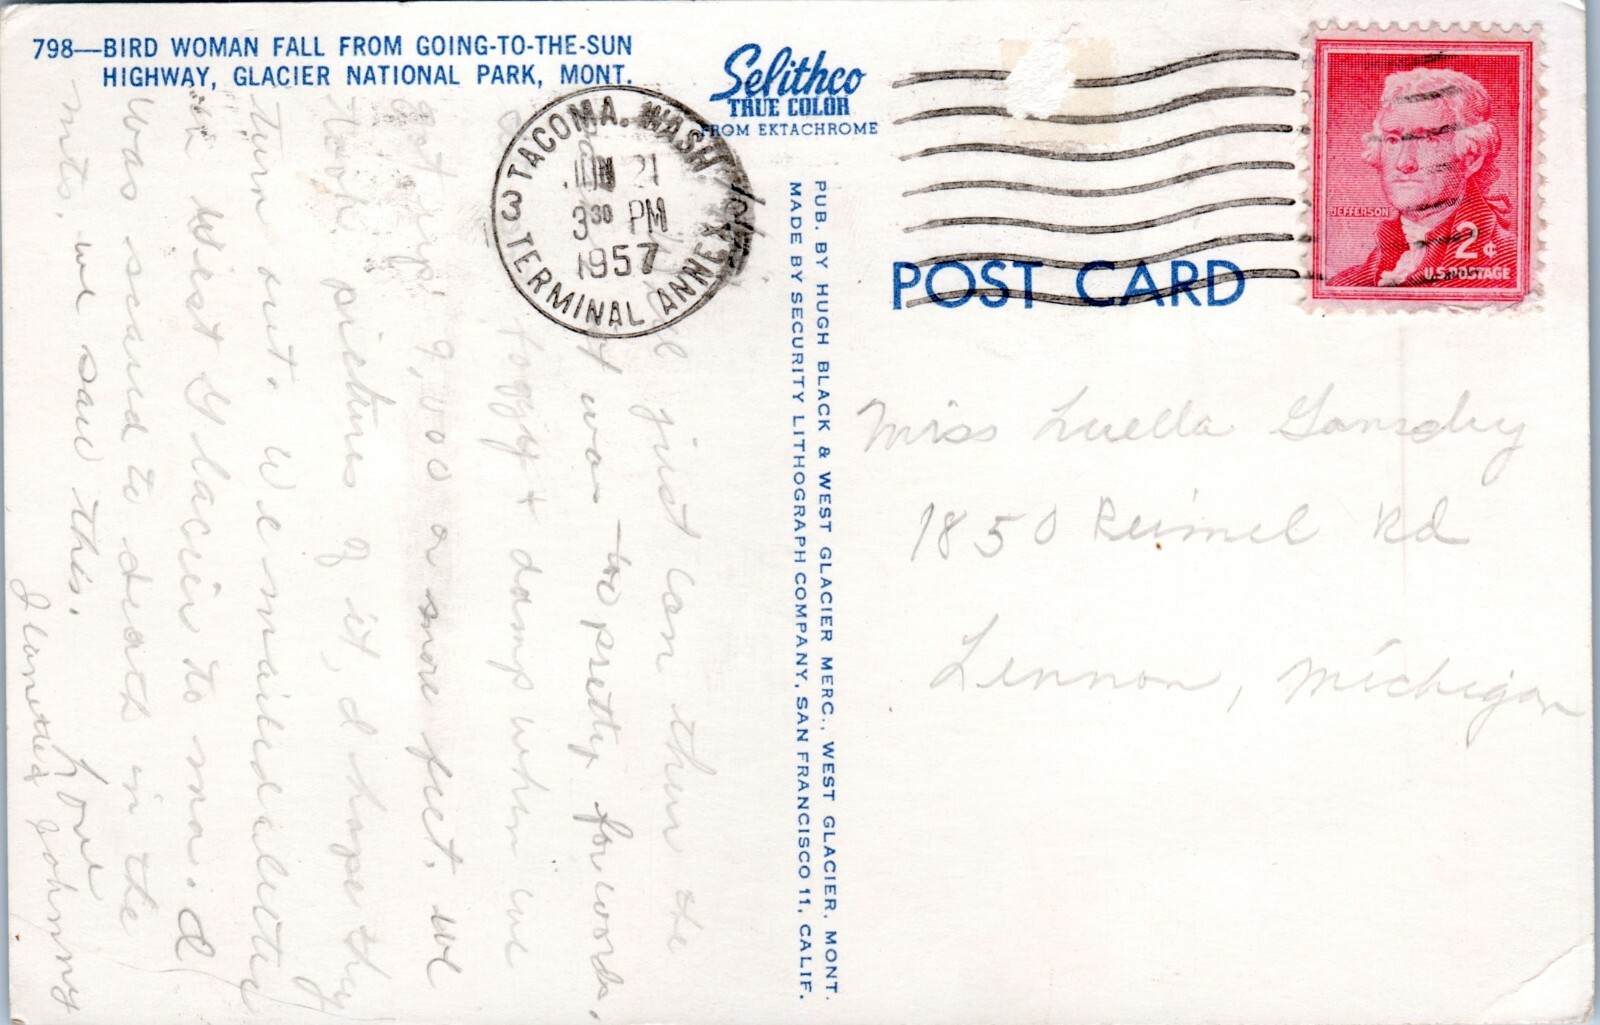 798—BIRD WOMAN FALL FROM GOING-TO-THE-SUN
HIGHWAY, GLACIER NATIONAL PARK, MONT.
Selithco
TRUE COLOR
FROM EKTACHROME
TACOMA, WASH
JUN 21
3 30 PM
1957
3 TERMINAL ANNEX
JEFFERSON
2¢
U.S. POSTAGE
POST CARD
PUB. BY HUGH BLACK & WEST GLACIER MERC., WEST GLACIER, MONT.
MADE BY SECURITY LITHOGRAPH COMPANY, SAN FRANCISCO 11, CALIF.
just came thru the
it was too pretty for words.
foggy & damp when we
got up 9,000 or more feet. we
took pictures of it, I hope they
turn out. We mailed a letter
in West Glacier to ma. I
was scared to death in the
mts. we saw this.
Love
& Johnny
Miss Luella
1850 Reimel Rd
Lennon, Michigan